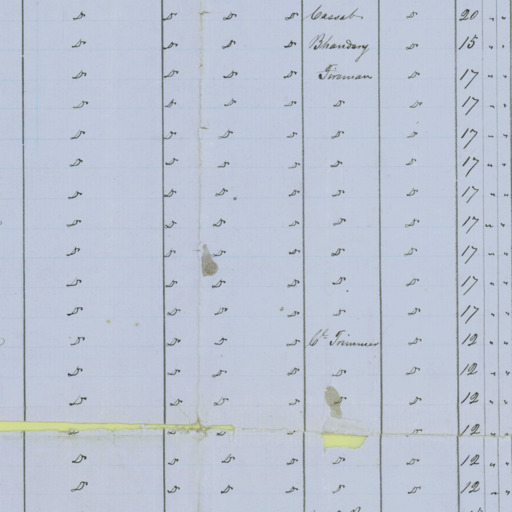 do do do do Cassab do 20 " "
do do do do Bhandary do 15 " "
do do do do Fireman do 17 " "
do do do do do do 17 " "
do do do do do do 17 " "
do do do do do do 17 " "
do do do do do do 17 " "
do do do do do do 17 " "
do do do do do do 17 " "
do do do do do do 17 " "
do do do do do do 17 " "
do do do do Cl Trimmer do 12 " "
do do do do do do 12 " "
do do do do do do 12 " "
do do do do do 12 " "
do do do do do do 12 " "
do do do do do do 12 " "